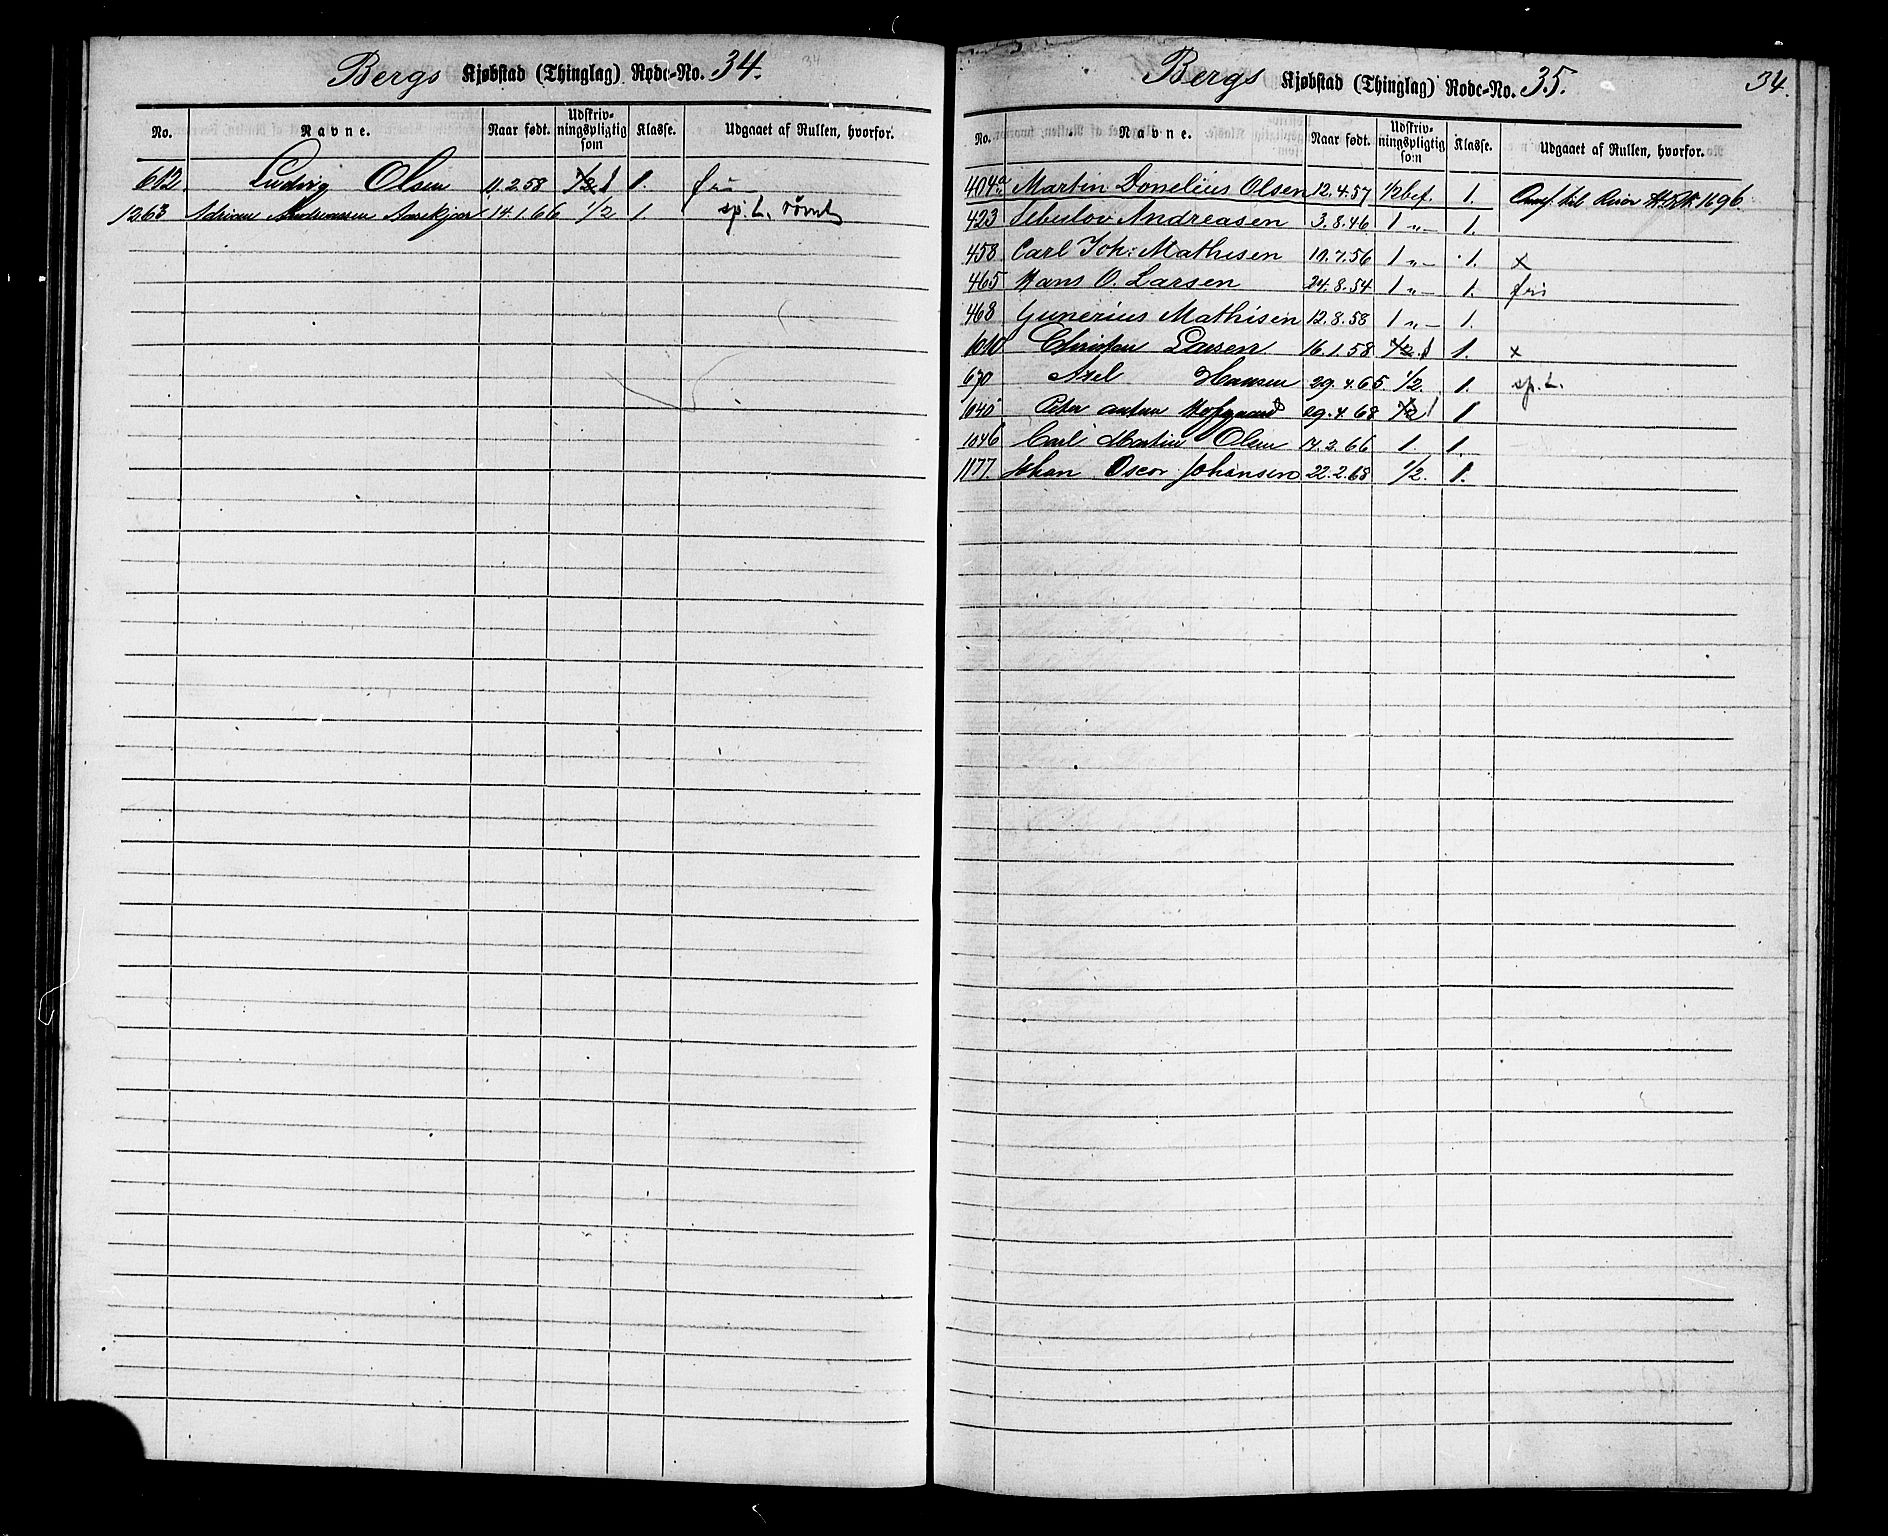 Bergs Kjøbstad (Thinglag) Rode-No. 34. 34
No. Navne. Naar født. Udskrivningspligtig som Klasse. Udgaaet af Rullen, hvorfor.
612. Ludvig Olsen 11.2.58 1/2 1 1. fri
1263 Adrian Andreasen Aaserkjær 14.1.66 1/2 1. sp. L. rømt
Bergs Kjøbstad (Thinglag) Rode-No. 35. 34.
No. Navne. Naar født. Udskrivningspligtig som Klasse. Udgaaet af Rullen, hvorfor.
404a Martin Donelius Olsen 12.4.57 1/2 bef. 1. til 1696.
423 Sebulov Andreasen 3.8.46 1 „ — 1.
458 Carl Joh: Mathisen 10.7.56 1 „ — 1. x
465 Hans O. Larsen 24.8.54 1 „ — 1. fri
468 Gunerius Mathisen 12.8.58 1 „ — 1.
1010 Christian Larsen 16.1.58 1/2 1 1. x
670 Axel Hansen 29.4.65 1/2. 1. sp. L.
1040 Peter Anton 29.4.68 1/2 1 1
1046 Carl Martin Olsen 17.2.66 1 1.
1177. Johan Oscar Johansen 22.2.68 1/2. 1.